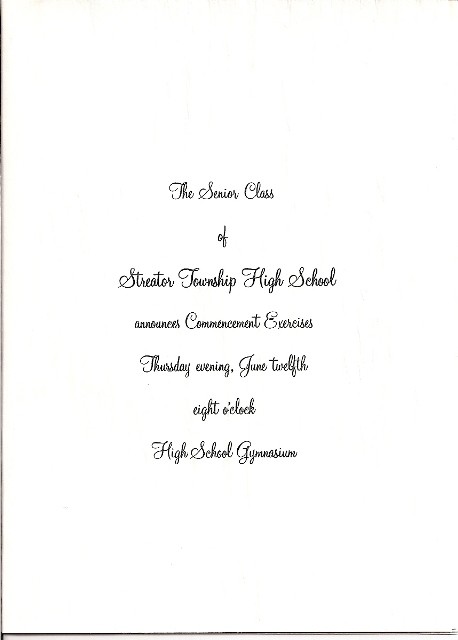 The Senior Class
of
Streator Township High School
announces Commencement Exercises
Thursday evening, June twelfth
eight o'clock
High School Gymnasium